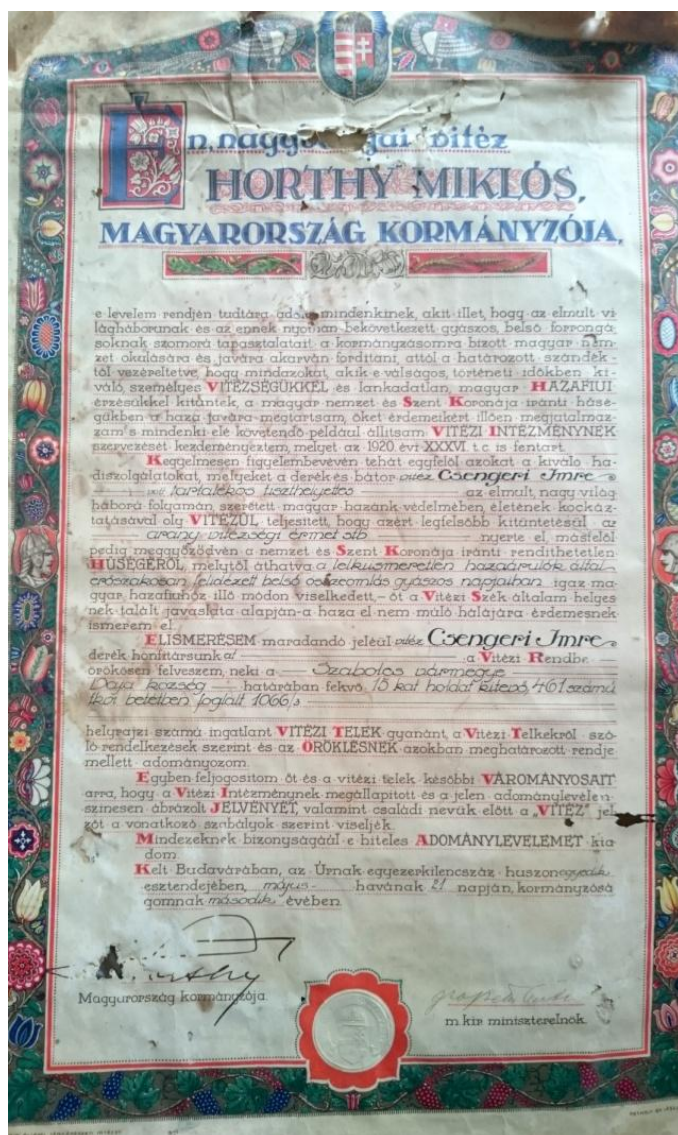 Én, nagybányai vitéz
HORTHY MIKLÓS,
MAGYARORSZÁG KORMÁNYZÓJA,
e levelem rendjén tudtára adom mindenkinek, akit illet, hogy az elmult vi
lágháborunak és az ennek nyomán bekövetkezett gyászos, belső forronga
soknak szomorú tapasztalatait a kormányzásomra bizott magyar nem
zet okulására és javára akarván fordítani, attól a határozott szándék
tól vezéreltetve, hogy mindazokat, akik e válságos, történeti időkben ki
váló, személyes VITÉZSÉGÜKKEL és lankadatlan, magyar HAZAFIUI
érzésükkel kitüntek, a magyar nemzet és Szent Koronája iránti hűsé
gükben a haza javára megtartsam, őket érdemeikért illően megjutalmaz
zam s mindenki elé követendő például állitsam VITÉZI INTÉZMÉNYNEK
szervezését kezdeményeztem, melyet az 1920 évi XXXVI. t.c. is fentart.
Kegyelmesen figyelembevéven tehát egyfelől azokat a kiváló ha
diszolgálatokat, melyeket a derék és bátor vitéz Csengeri Imre
volt tartalékos tiszthelyettes az elmalt, nagy világ
háború folyamán, szeretett magyar hazánk védelmében, életének kockáz
tatásával oly VITÉZÜL teljesitett, hogy azért legfelsőbb kitüntetésül az
arany vitézségi érmet stb nyerte el, másfelől
pedig meggyőződvén a nemzet és Szent Koronája iránti rendithetetlen
HŰSÉGÉRŐL, melytől áthatva a lelkiismeretlen hazaárulók által
erőszakosan felidézett belső összeomlás gyászos napjaiban igaz ma
gyar hazafiuhoz illő módon viselkedett, – őt a Vitézi Szék általam helyes
nek talált javaslata alapján a haza el nem múló hálájára érdemesnek
ismerem el.
ELISMERÉSEM maradandó jeléül vitéz Csengeri Imre
derék honfitársunkat a Vitézi Rendbe
örökösen felveszem, neki a Szabolcs vármegye
község határában fekvő, 15 kat holdat kitevő, 461 számú
tkvi betétben foglalt 1066/
helyrajzi számú ingatlant VITÉZI TELEK gyanánt, a Vitézi Telkekről szó
ló rendelkezések szerint és az ÖRÖKLÉSNEK azokban meghatározott rendje
mellett adományozom.
Egyben feljogositom őt és a vitézi telek későbbi VÁROMÁNYOSAIT
arra, hogy a Vitézi Intézménynek megállapitott és a jelen adománylevélen
szinesen ábrázolt JELVÉNYÉT, valamint családi nevük előtt a „VITÉZ" jel
zőt a vonatkozó szabályok szerint viseljék.
Mindezeknek bizonyságáúl e hiteles ADOMÁNYLEVELEMET kia
dom.
Kelt Budavárában, az Úrnak egyezerkilencszáz huszonegyedik
esztendejében, május havának 21 napján, kormányzósá
gomnak második évében.
Horthy
Magyarország kormányzója.
m. kir. miniszterelnök.